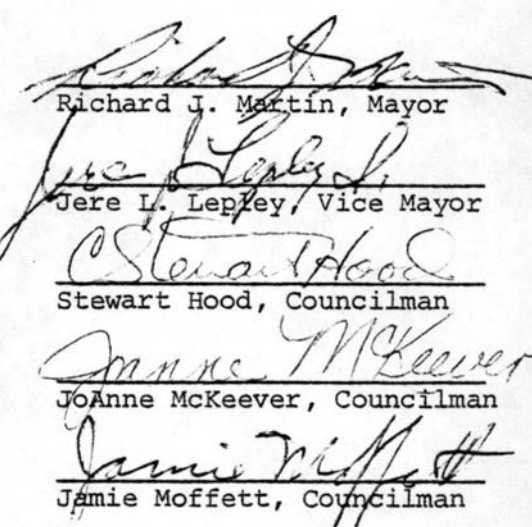 Richard J. Martin
Richard J. Martin, Mayor
Jere L. Lepley Sr.
Jere L. Lepley, Vice Mayor
C Stewart Hood
Stewart Hood, Councilman
JoAnne McKeever
JoAnne McKeever, Councilman
Jamie Moffett
Jamie Moffett, Councilman